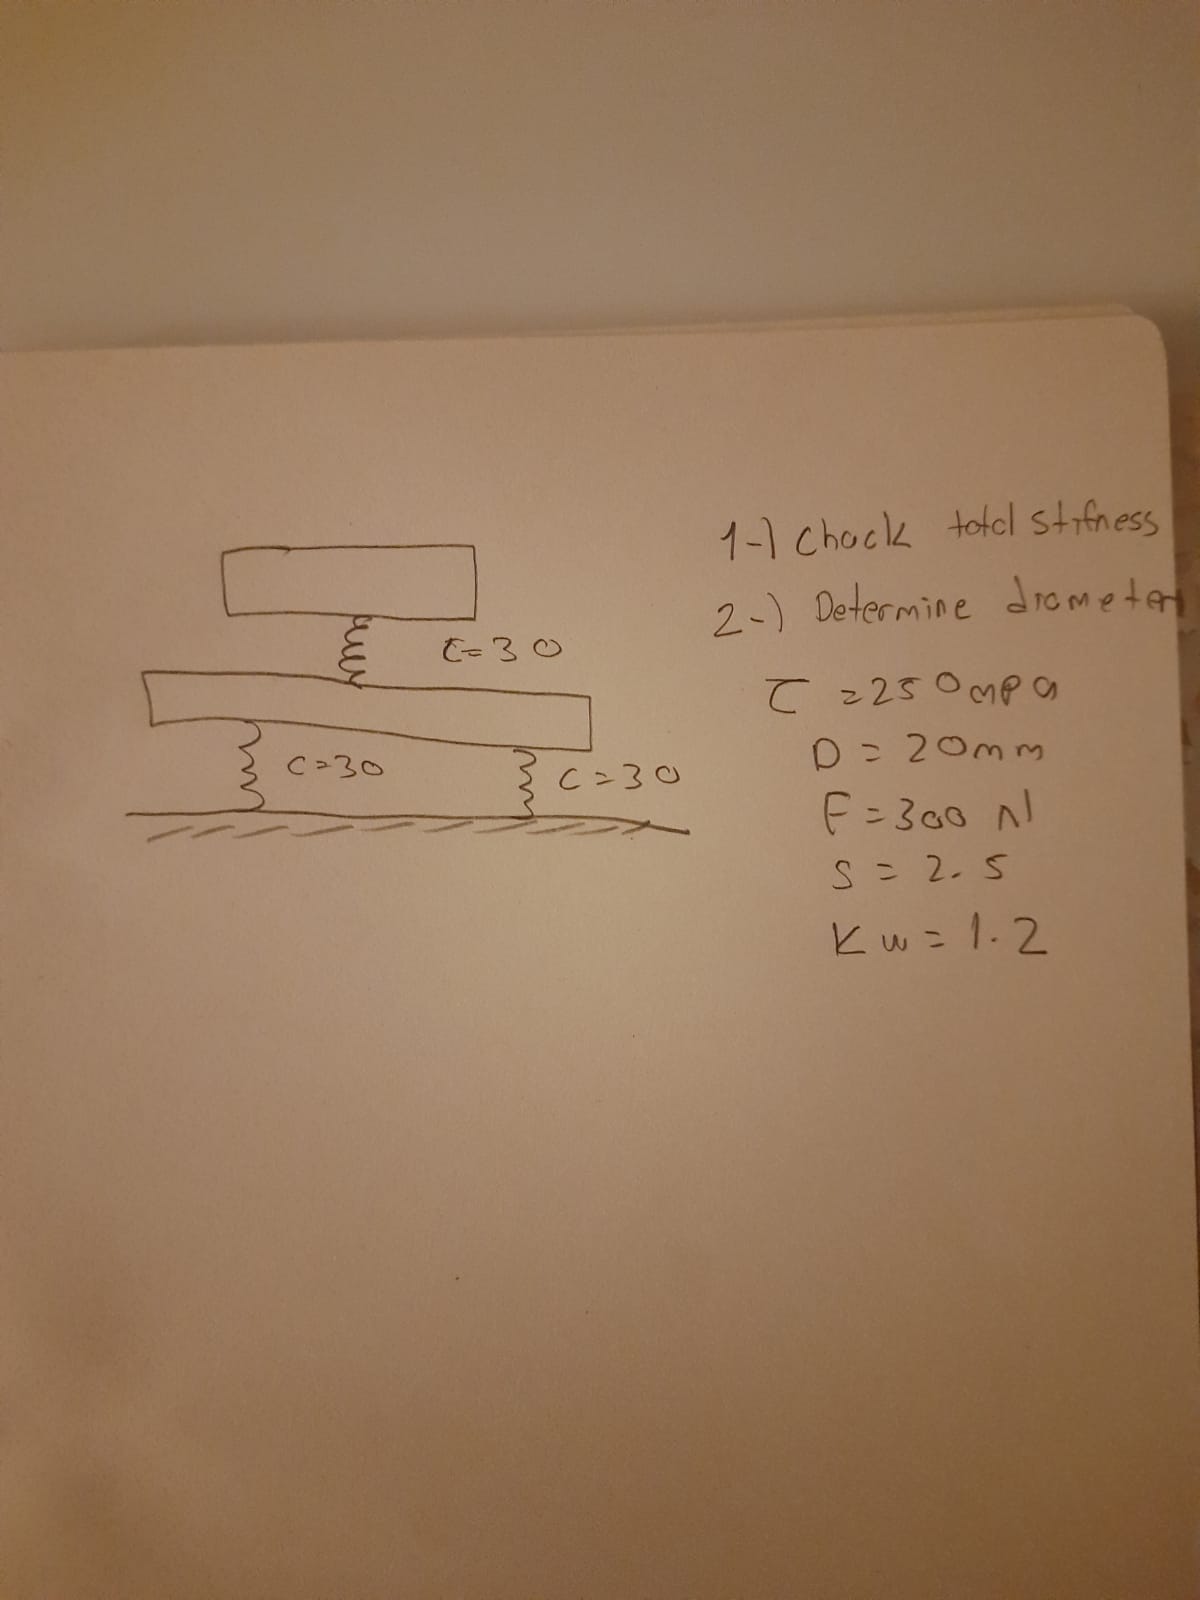 1-) Chack total stifness
2-) Determine diameter
τ = 250 mpa
D = 20mm
F = 300 N
S = 2.5
Kw = 1.2
C=30
C=30
C=30